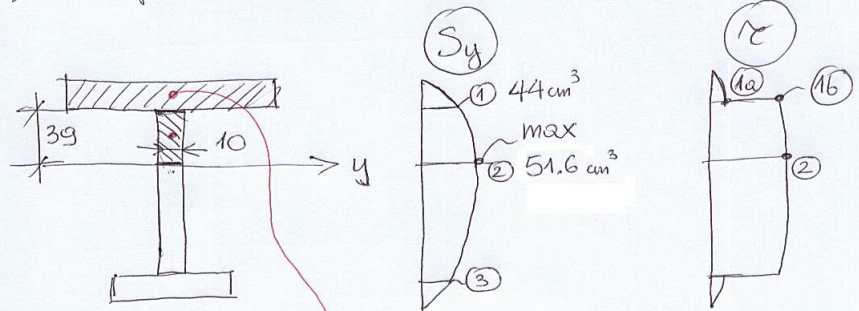 39
10
y
Sy
① 44 cm³
max
② 51.6 cm³
③
τ
1a
1b
②